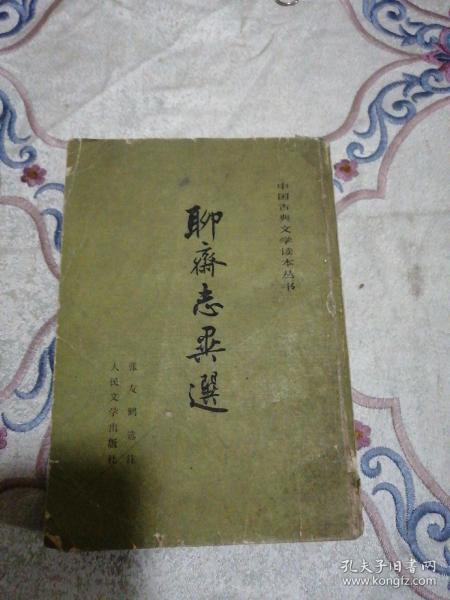 中国古典文学读本丛书
聊齋志異選
张友鹤选注
人民文学出版社
孔夫子旧书网
www.kongfz.com